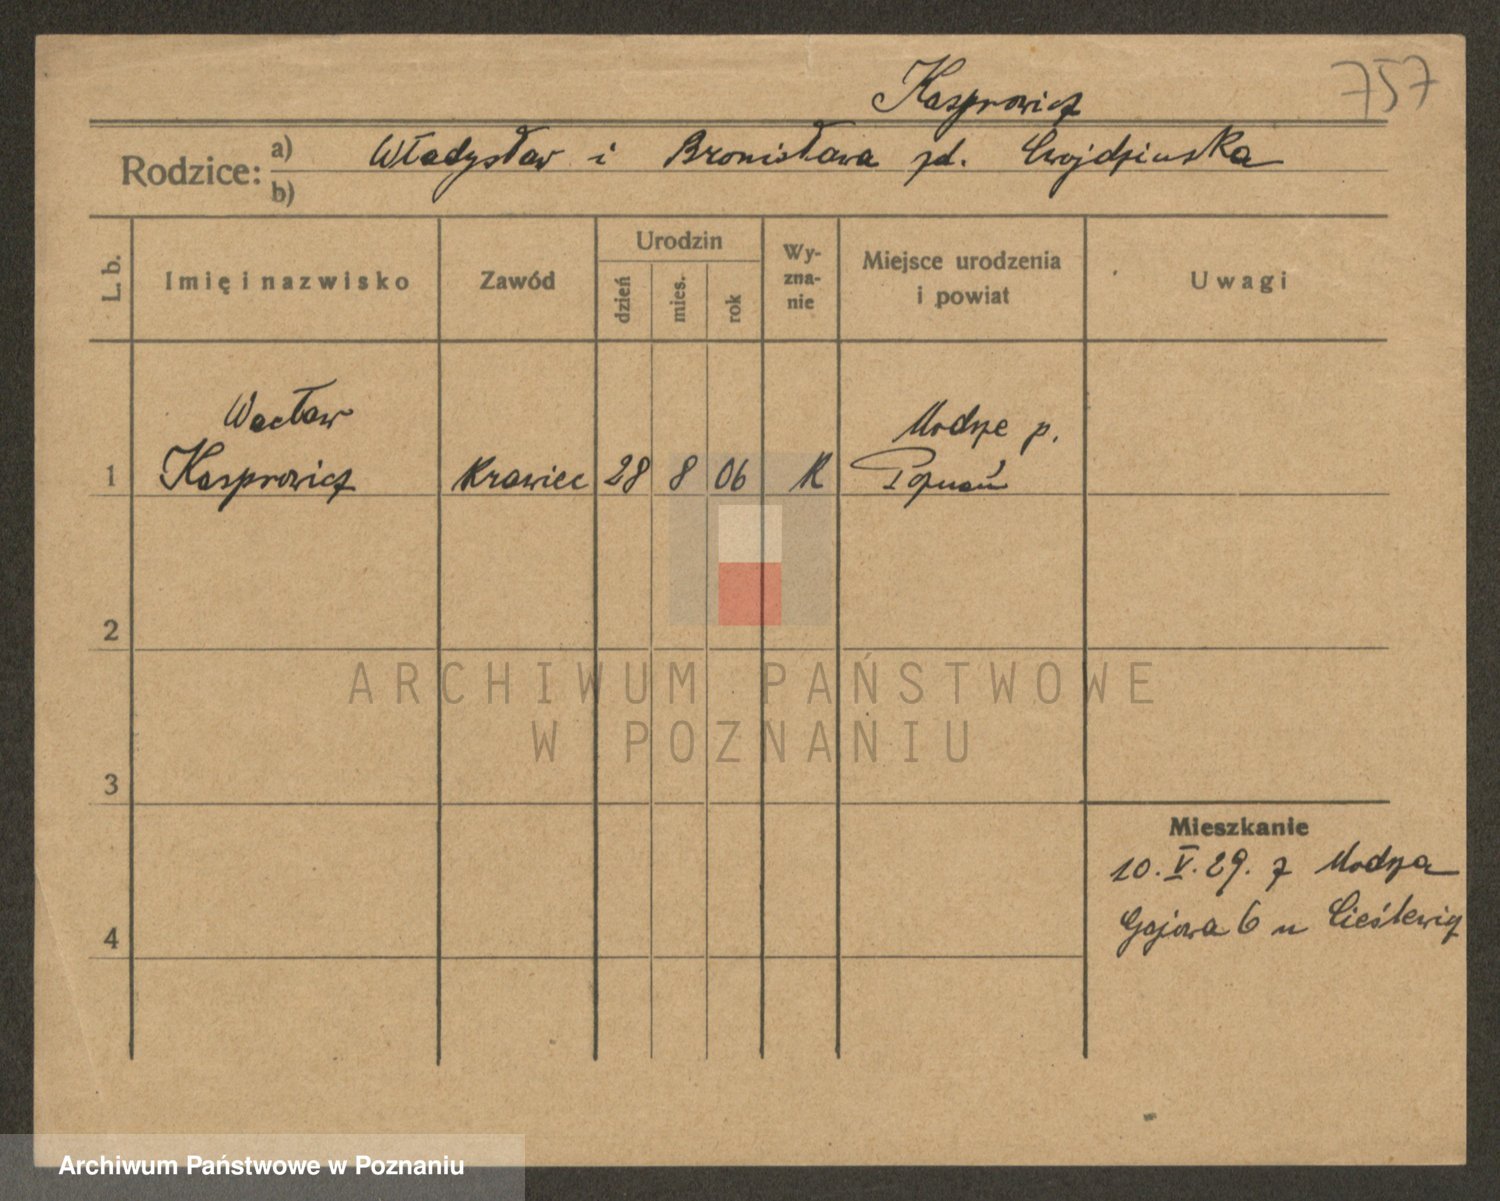 Kasprowicz
757
Rodzice: a) Władysław i Bronisława zd. Cwojdzinska
b)
L. b.
Imię i nazwisko
Zawód
Urodzin
dzień
mies.
rok
Wy-
zna-
nie
Miejsce urodzenia
i powiat
Uwagi
Wacław
Modrze p.
1 Kasprowicz Krawiec 28 8 06 K Poznań
2
ARCHIWUM PAŃSTWOWE
W POZNANIU
3
Mieszkanie
10.V.29. z Modrza
Gajowa 6 u Cieślewicz
4
Archiwum Państwowe w Poznaniu